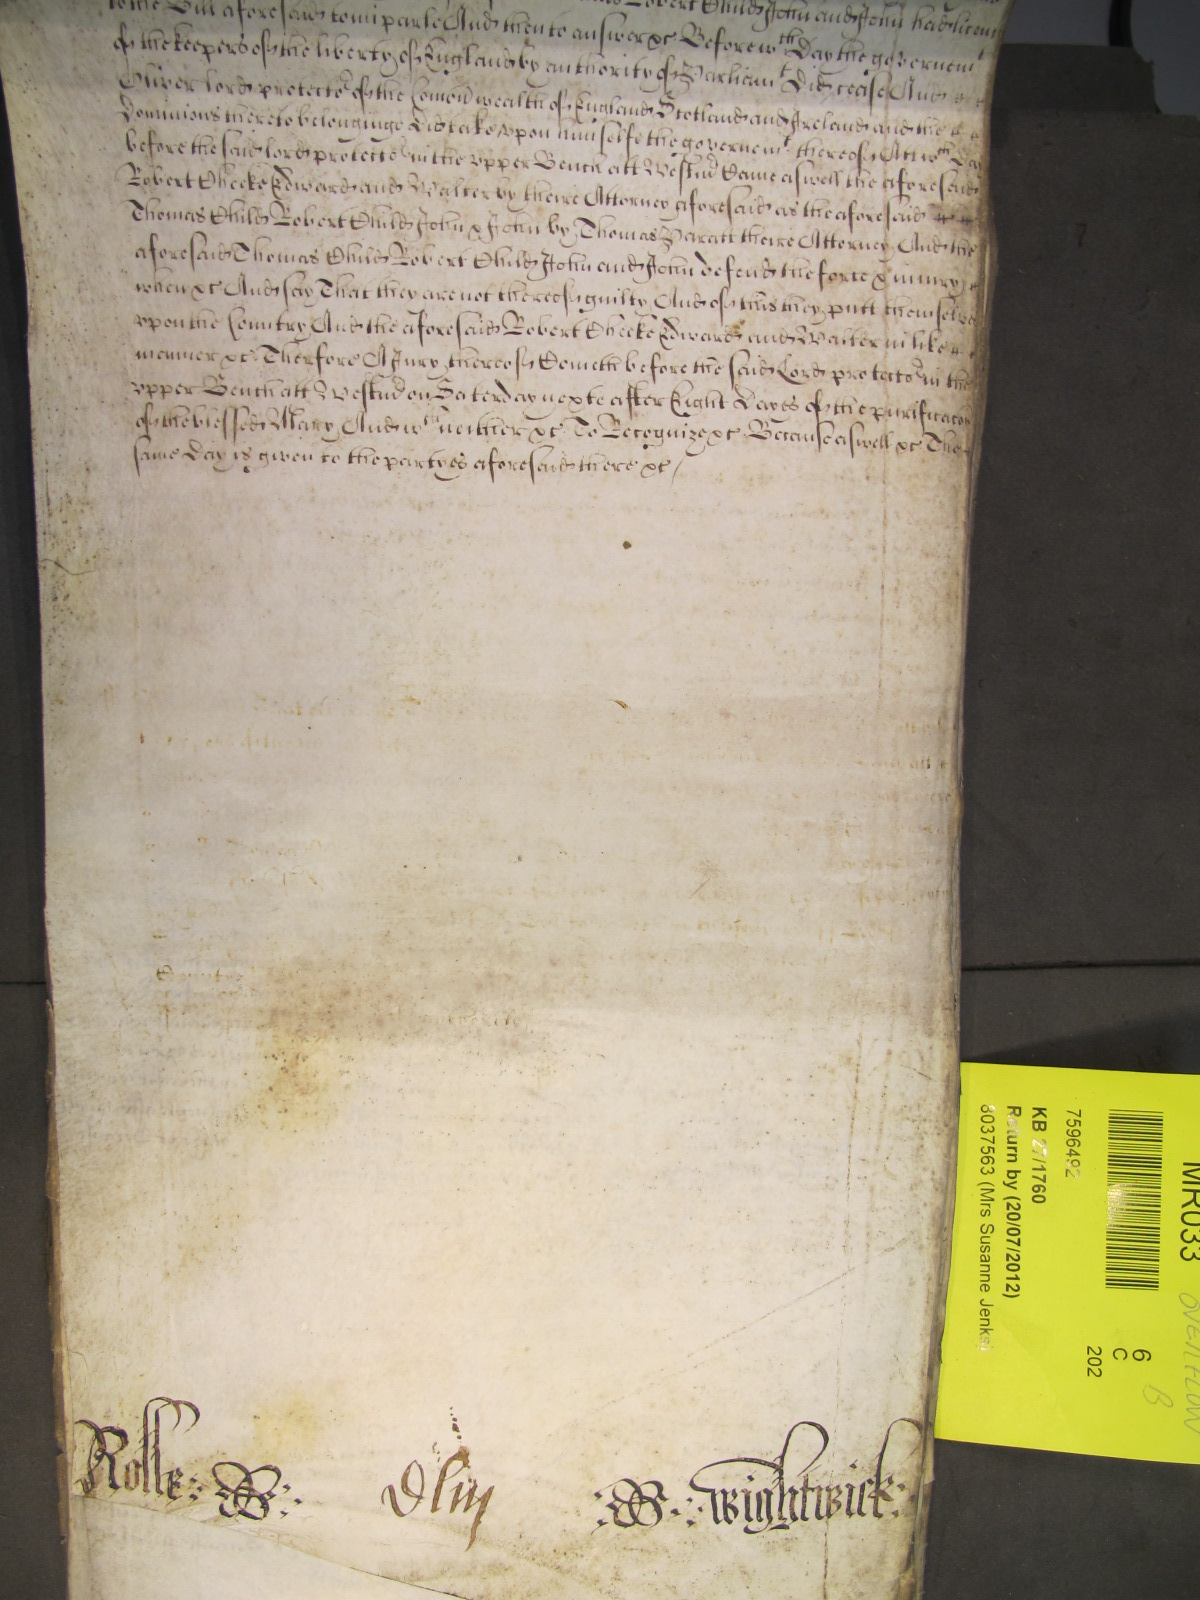 to the Bill aforesaid to imparle And then to answer &c Before wch Day the governemt
of the keepers of the liberty of England by authority of Parliamt Did cease And
Oliver lord protector of the Comon wealth of England Scotland and Ireland and the
Dominions thereto belonginge did take upon himselfe the governemt thereof Att wch Day
before the said lord protector in the upper Bench att Westmr Came aswell the aforesaid
Robert Cheeke Edward and Walter by theire Attorney aforesaid as the aforesaid
Thomas Child Robert Child John & John by Thomas Paratt theire Attorney And the
aforesaid Thomas Child Robert Child John and John defend the force & injury
when &c And say That they are not thereof guilty And of this they putt themselves
upon the Country And the aforesaid Robert Cheeke Edward and Walter in like
manner &c Therfore A Jury thereof Cometh before the said Lord protector in the
upper Bench att Westmr on Saterday nexte after Eight Dayes of the purificacon
of the blessed Mary And wch neither &c To Recognize &c Because aswell &c The
same Day is given to the partyes aforesaid there &c /
Rolle
Wightwick
MR033
OVERFLOW
B
6
C
202
7596492
KB 27/1760
Return by (20/07/2012)
8037563 (Mrs Susanne Jenks)